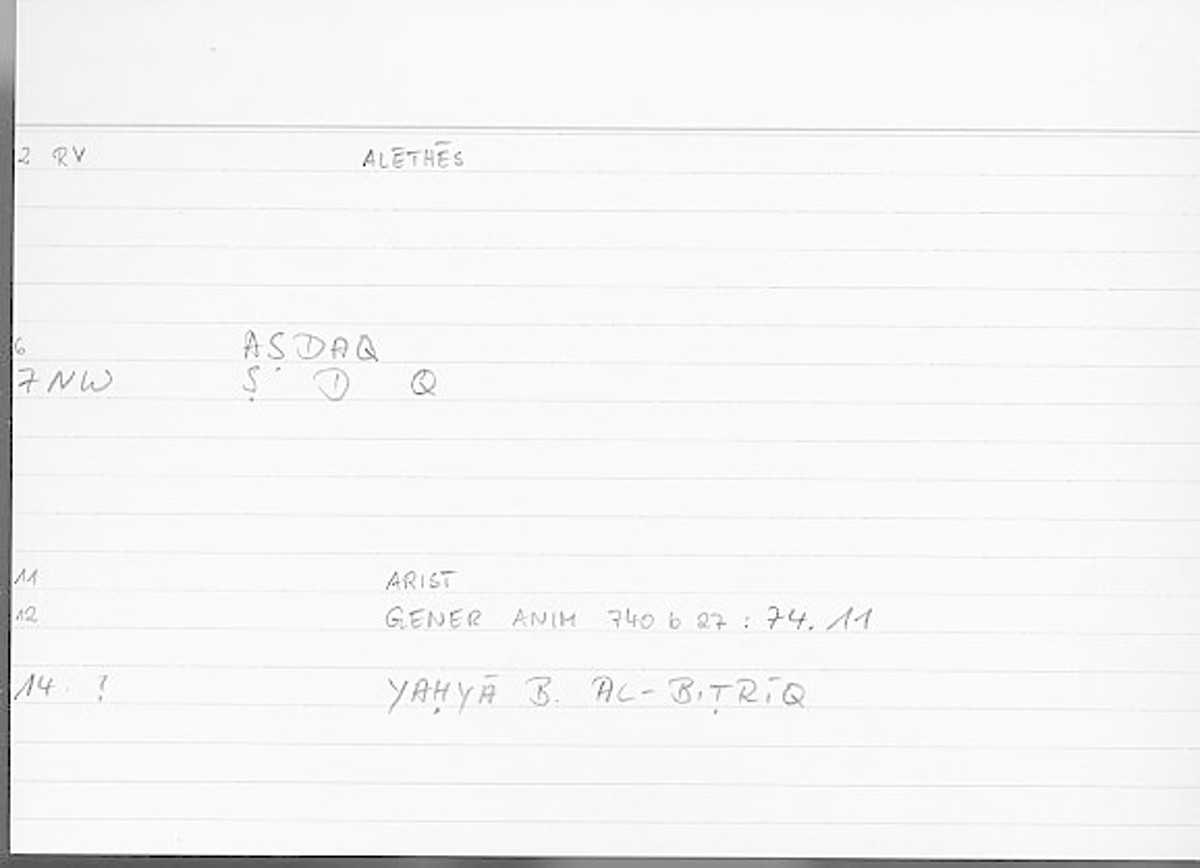 2 RV ALĒTHĒS
6 AṢDAQ
7 NW Ṣ D Q
11 ARIST
12 GENER ANIM 740 b 27 : 74.11
14. ? YAḤYĀ B. AL-BIṬRĪQ